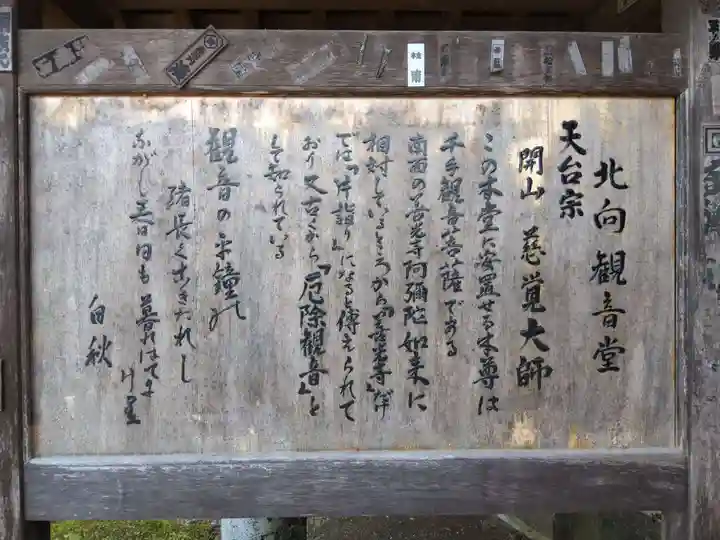 北向観音堂
天台宗
開山 慈覚大師
この本堂に安置せる本尊は
千手観音菩薩である
南面の善光寺阿彌陀如来に
相対しているところから『善光寺』だけ
では『片詣り』になると傳えられて
おり又古くから『厄除観音』と
して知られている
観音のこの鐘の
緒長く古きたれし
ながし春日も暮れはてに
けり
白秋